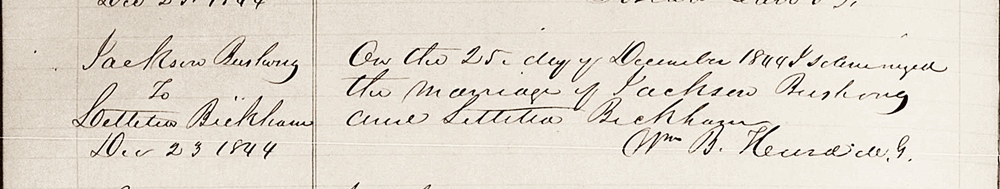 Dec 23. 1844
Jackson Bushong
To
Lettitia Bickham
Dec 23 1844
On the 25. day of December 1844 I solemnized
the marriage of Jackson Bushong
and Lettitia Bickham
Wm B.